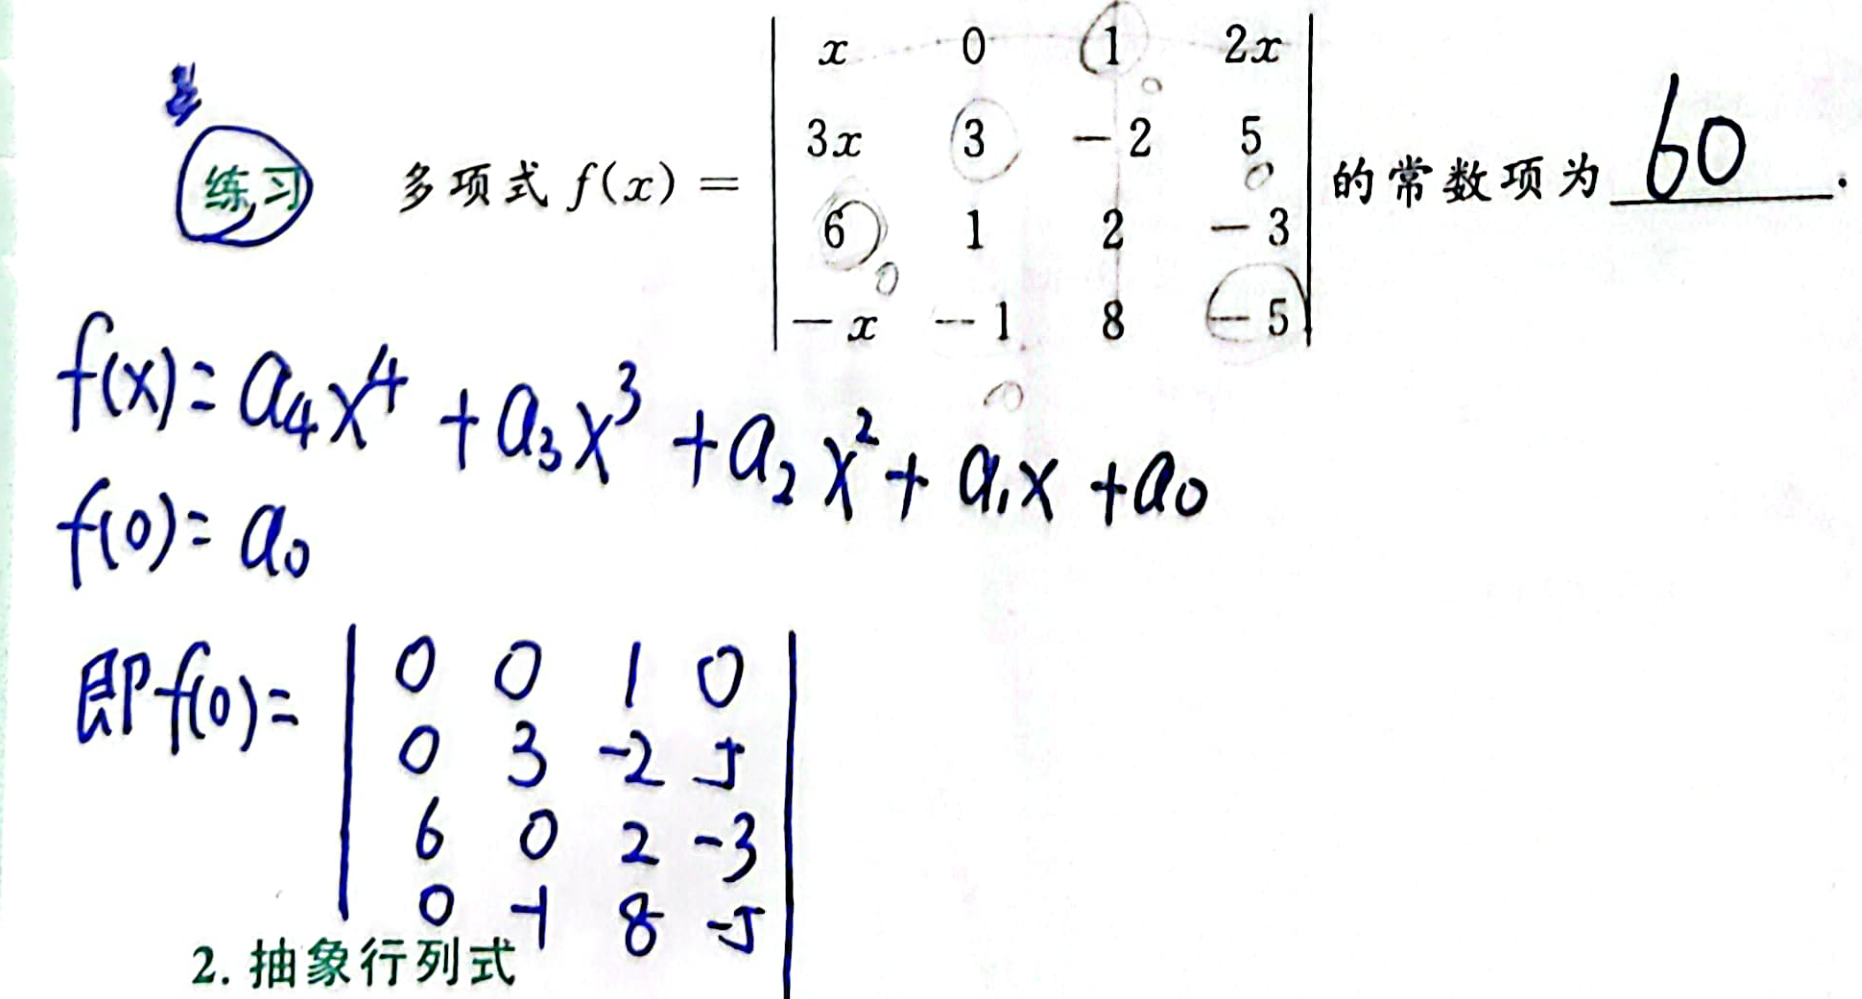 练习 多项式 f(x) = | x 0 1 2x | 的常数项为 60 .
| 3x 3 -2 5 |
| 6 1 2 -3 |
| -x -1 8 -5 |
f(x)= a₄x⁴ + a₃x³ + a₂x² + a₁x + a₀
f(0)= a₀
即f(0)= | 0 0 1 0 |
| 0 3 -2 5 |
| 6 0 2 -3 |
| 0 -1 8 -5 |
2. 抽象行列式